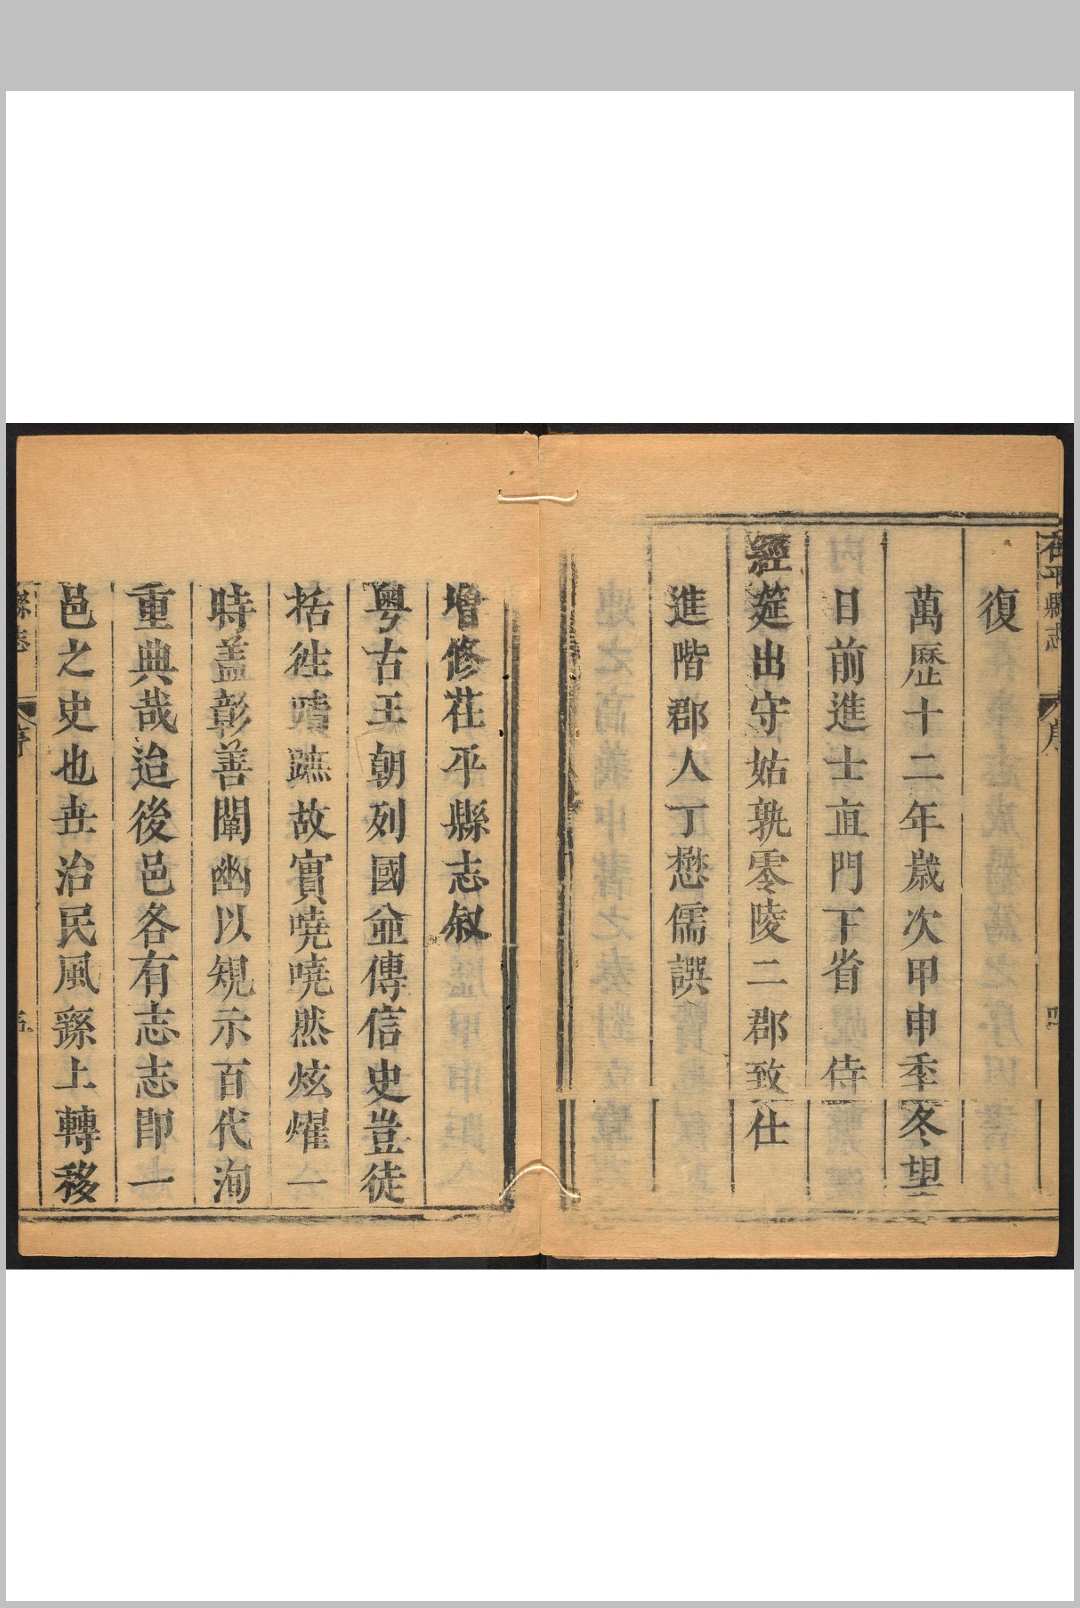 茌平縣志
序
復
萬歷十二年歲次甲申季冬望
日前進士直門下省侍
經筵出守姑孰零陵二郡致仕
進階郡人丁懋儒譔
增修茌平縣志敘
粵古王朝列國僉傳信史豈徒
括徃蹟蹠故實嘵嘵然炫燿一
時盖彰善闡幽以䂓示百代洵
重典哉迨後邑各有志志即一
邑之史也丗治民風繇上轉移
縣志
序
五